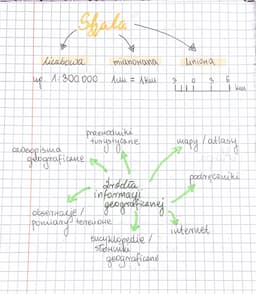 Skala
liczbowa mianowana liniowa
np. 1:300 000 1cm = 1km 3 0 3 6 km
przewodniki
turystyczne
czasopisma
geograficzne
mapy / atlasy
podręczniki
źródła
informacji
geograficznej
obserwacje /
pomiary terenowe
internet
encyklopedie /
słowniki
geograficzne